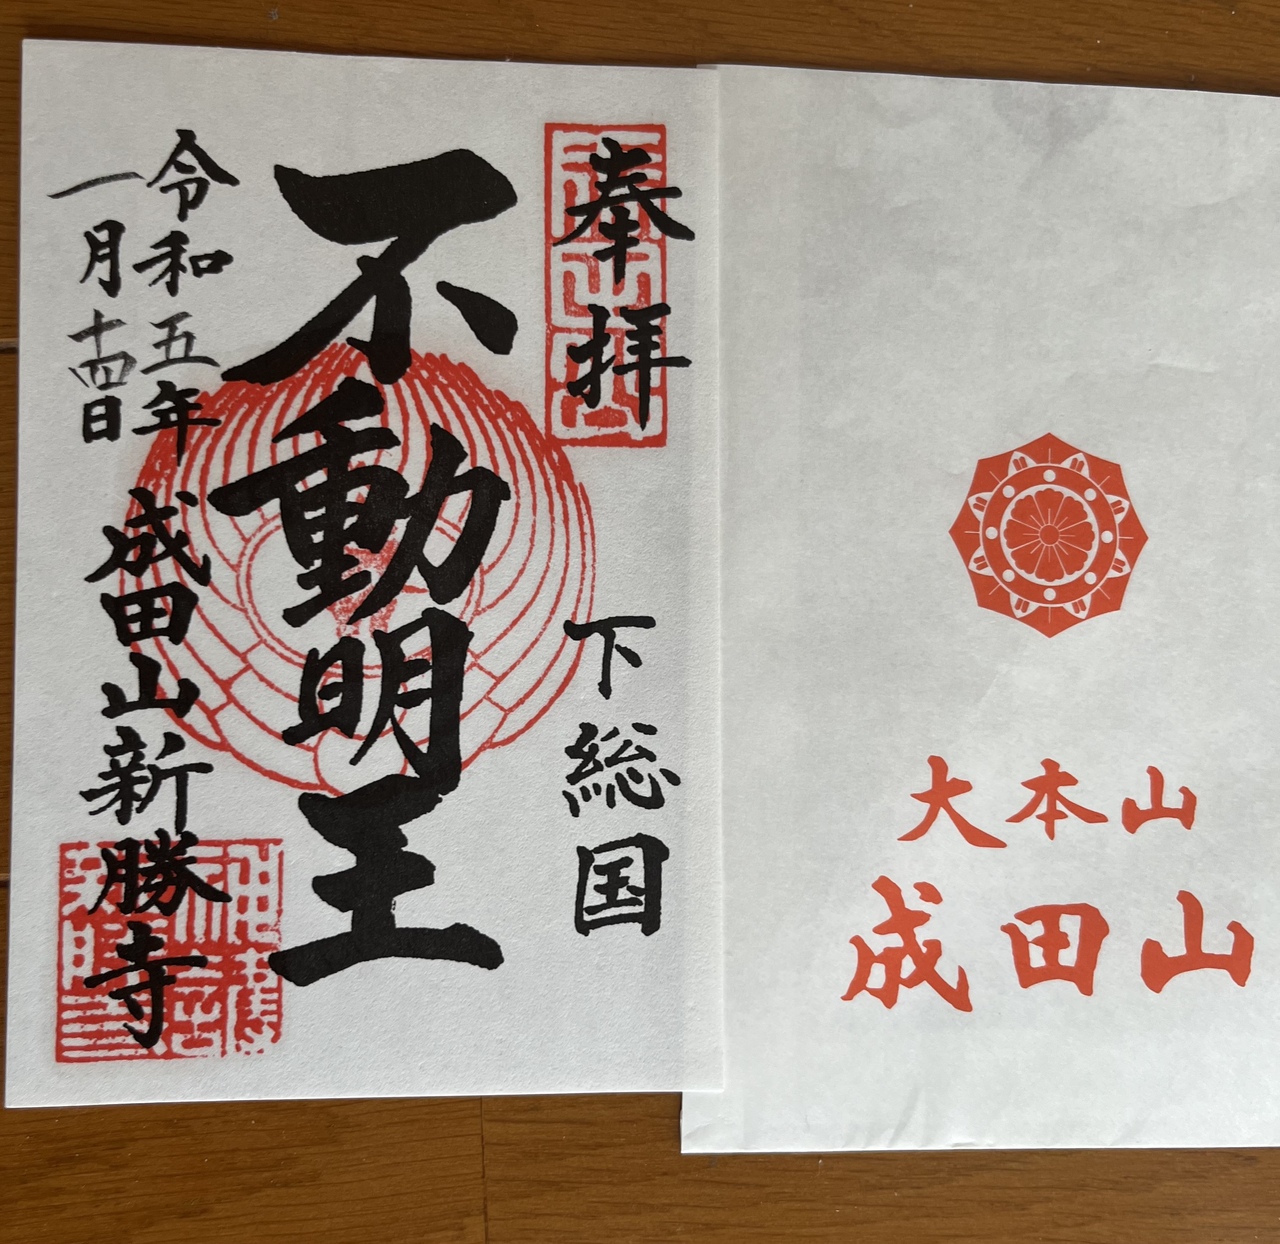 奉拝
下総国
不動明王
令和五年
一月十四日
成田山新勝寺
大本山
成田山